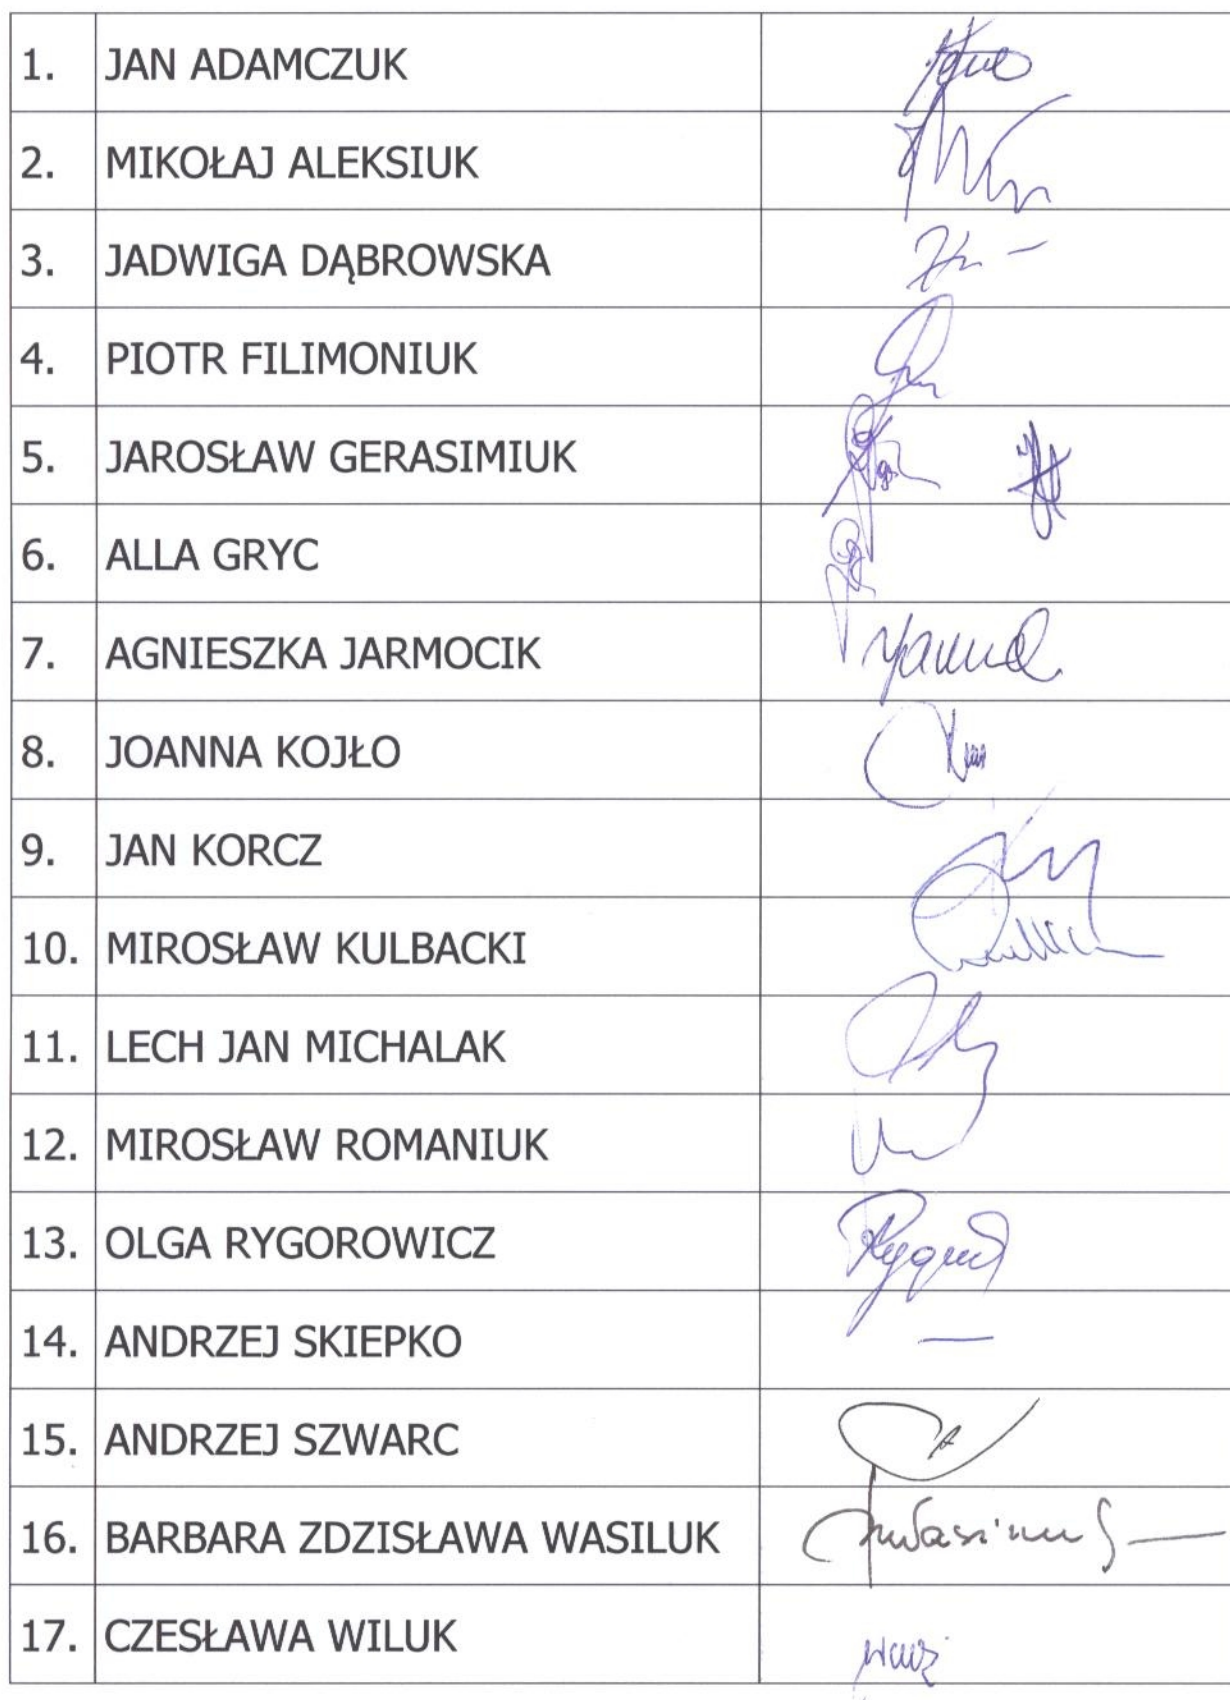 1. JAN ADAMCZUK
2. MIKOŁAJ ALEKSIUK
3. JADWIGA DĄBROWSKA
4. PIOTR FILIMONIUK
5. JAROSŁAW GERASIMIUK
6. ALLA GRYC
7. AGNIESZKA JARMOCIK
8. JOANNA KOJŁO
9. JAN KORCZ
10. MIROSŁAW KULBACKI
11. LECH JAN MICHALAK
12. MIROSŁAW ROMANIUK
13. OLGA RYGOROWICZ
14. ANDRZEJ SKIEPKO
15. ANDRZEJ SZWARC
16. BARBARA ZDZISŁAWA WASILUK
17. CZESŁAWA WILUK